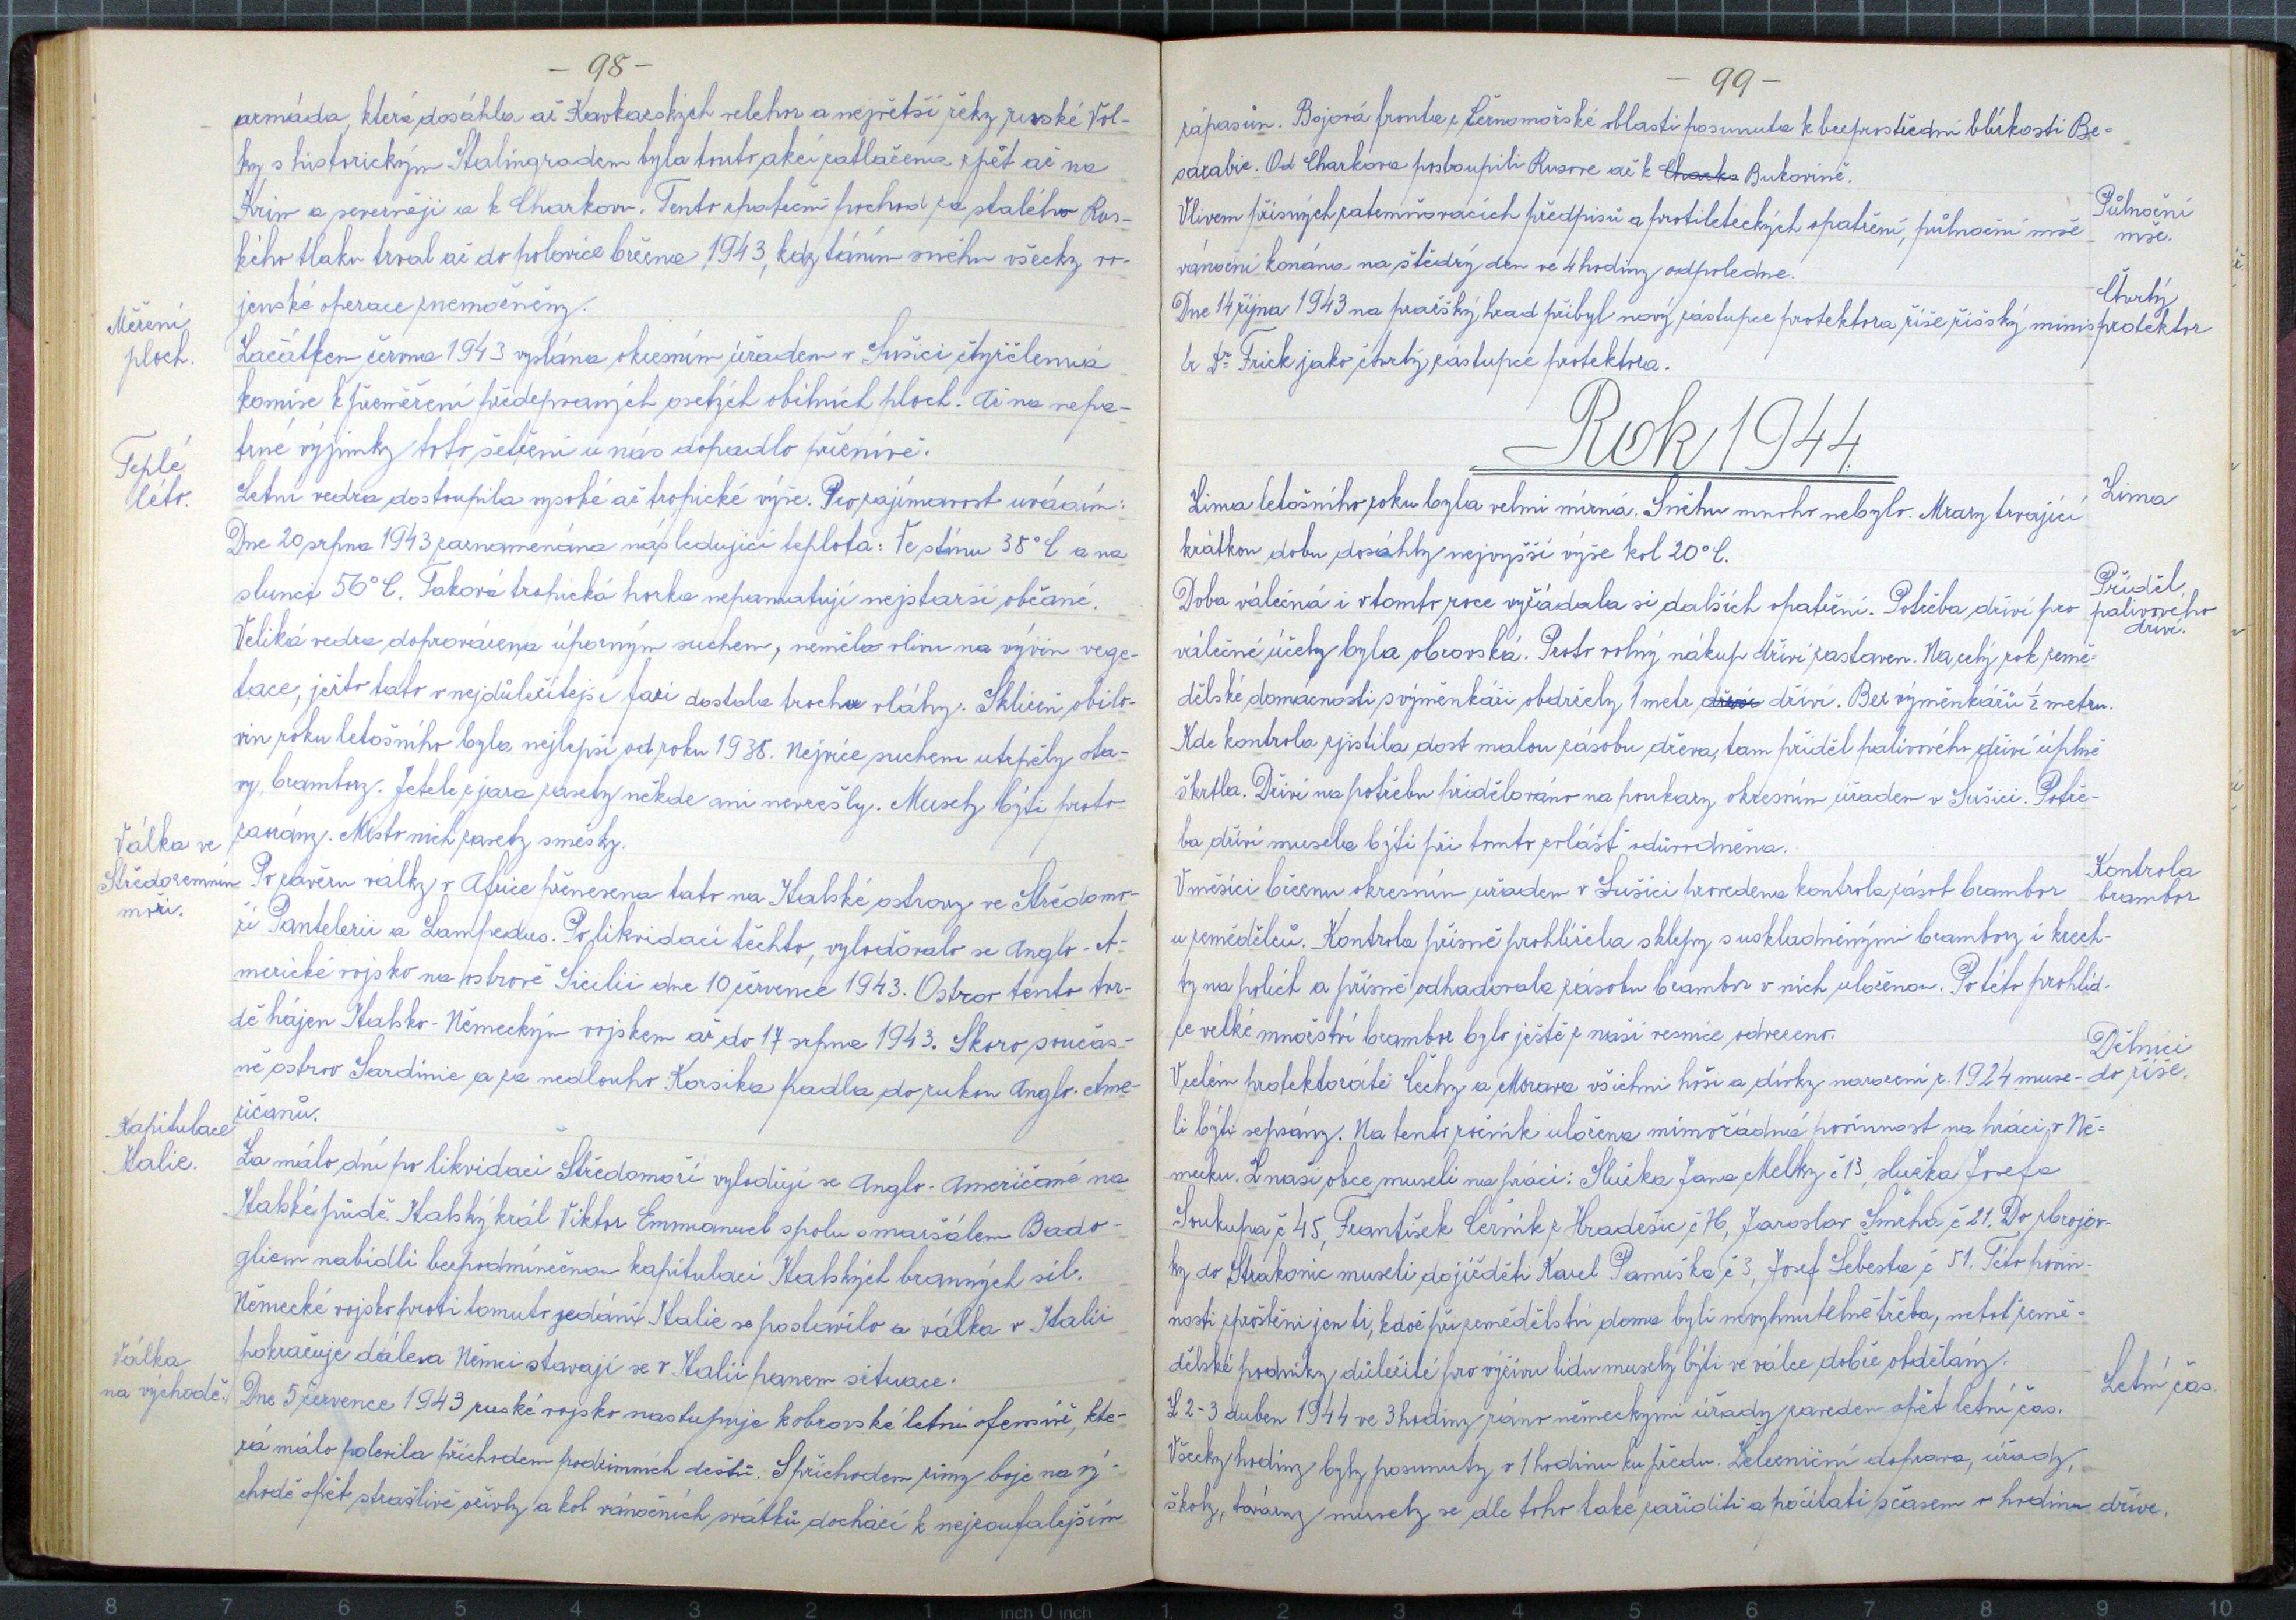 - 98 -
armáda, která dosáhla až Kavkazských velehor a největší řeky ruské Vol-
ky s historickým Stalingradem byla touto akcí zatlačena zpět až na
Krim a severněji až k Charkovu. Tento zpáteční pochod za stálého Rus-
kého tlaku trval až do polovice března 1943, kdy táním sněhu všecky vo-
jenské operace znemožněny.
Měření
ploch.
Začátkem června 1943 vyslána okresním úřadem v Sušici čtyřčlenná
komise k přeměření předepsaných osetých obilních ploch. Až na nepa-
trné výjimky toto šetření u nás dopadlo příznivě.
Teplé
léto.
Letní vedra dostoupila vysoké až tropické výše. Pro zajímavost uvádím:
Dne 20 srpna 1943 zaznamenána následující teplota: Ve stínu 38° C a na
slunci 56° C. Taková tropická horka nepamatují nejstarší občané.
Veliká vedra doprovázena úporným suchem, neměla vlivu na vývin vege-
tace, ježto tato v nejdůležitejší fázi dostala trochu vláhy. Sklizeň obilo-
vin roku letošního byla nejlepší od roku 1938. Nejvíce suchem utrpěly ota-
vy, brambory. Jetele z jara zasety někde ani nevzešly. Musely býti proto
zaorány. Místo nich zasety směsky.
Válka ve
Středozemním
moři.
Po závěru války v Africe přenesena tato na Italské ostrovy ve Středomo-
ří Pantelerii a Lampedus. Po likvidaci těchto, vyloďovalo se Anglo-A-
merické vojsko na ostrově Sicilii dne 10 července 1943. Ostrov tento tvr-
dě hájen Italsko-Německým vojskem až do 17 srpna 1943. Skoro součas-
ně ostrov Sardinie a za nedlouho Korsika padla do rukou Anglo-Ame-
ričanů.
Kapitulace
Italie.
Za málo dní po likvidaci Středomoří vyloďují se Anglo-Američané na
Italské půdě. Italský král Viktor Emmanuel spolu s maršálem Bado-
gliem nabídli bezpodmínečnou kapitulaci Italských branných sil.
Německé vojsko proti tomuto jednání Italie se postavilo a válka v Italii
pokračuje dále a Němci stavají se v Italii panem situace.
Válka
na východě.
Dne 5 července 1943 ruské vojsko nastupuje k obrovské letní ofensivě, kte-
rá málo polevila příchodem podzimních dešťů. S příchodem zimy boje na vý-
chodě opět strašlivě ožívly a kol vánočních svátků dochází k nejzoufalejším
- 99 -
zápasům. Bojová fronta z Černomořské oblasti posunuta k bezprostřední blízkosti Be-
sarabie. Od Charkova postoupili Rusové až k Charko Bukovině.
Vlivem přísných zatemňovacích předpisů a protileteckých opatření, půlnoční mše
vánoční konána na štědrý den ve 4 hodiny odpoledne.
Půlnoční
mše.
Dne 14 října 1943 na pražský hrad přibyl nový zástupce protektora říše říšský minis
tr Dr Frick jako čtvrtý zástupce protektora.
Čtvrtý
protektor
Rok 1944.
Zima letošního roku byla velmi mírná. Sněhu mnoho nebylo. Mrazy trvající
krátkou dobu dosáhly nejvyšší výše kol 20° C.
Zima
Doba válečná i v tomto roce vyžádala si dalších opatření. Potřeba dříví pro
válečné účely byla obrovská. Proto volný nákup dříví zastaven. Na celý rok země-
dělské domácnosti s výměnkáři obdržely 1 metr dříví dříví. Bez výměnkářů ½ metru.
Kde kontrola zjistila dost malou zásobu dřeva, tam příděl palivového dříví úplně
škrtla. Dříví na potřebu přidělováno na poukazy okresním úřadem v Sušici. Potře-
ba dříví musela býti při tomto zvlášť odůvodněna.
Příděl
palivového
dříví.
V měsíci březnu okresním uřadem v Sušici provedena kontrola zásob brambor
u zemědělců. Kontrola přísně prohlížela sklepy s uskladněnými brambory i krech-
ty na polích a přísně odhadovala zásobu brambor v nich uloženou. Po této prohlíd-
ce velké množství brambor bylo ještě z naší vesnice odvezeno.
Kontrola
brambor
V celém protektorátě Čechy a Morava všichni hoši a dívky narození r. 1924 muse-
li býti sepsány. Na tento ročník uložena mimořádná povinnost na práci v Ně-
mecku. Z naší obce museli na práci: Služka Jana Melky č 13, služka Josefa
Soukupa č 45, František Černík z Hradešic č 76, Jaroslav Smrha č 21. Do zbrojov-
ky do Strakonic museli dojížděti Karel Pamiška č 3, Josef Šebesta č 51. Této povin-
nosti zproštěni jen ti, kdož při zemědělství doma byli nevyhnutelně třeba, neboť země-
dělské podniky důležité pro výživu lidu musely býti ve válce dobře obdělány.
Dělníci
do říše.
Z 2-3 duben 1944 ve 3 hodiny ráno německými úřady zaveden opět letní čas.
Všecky hodiny byly posunuty o 1 hodinu ku předu. Železniční doprava, úřady,
školy, továrny musely se dle toho také zaříditi a počítati s časem o hodinu dříve.
Letní čas.